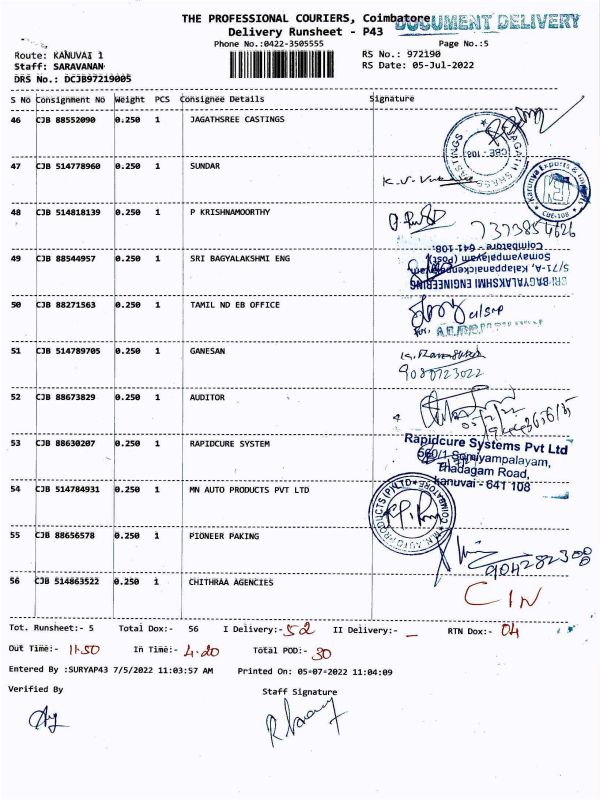 THE PROFESSIONAL COURIERS, Coimbatore
DOCUMENT DELIVERY
Delivery Runsheet - P43
Phone No.:0422-3505555
Page No.:5
Route: KANUVAI 1
RS No.: 972190
Staff: SARAVANAN
RS Date: 05-Jul-2022
DRS No.: DCJB97219005
S No Consignment No Weight PCS Consignee Details Signature
46 CJB 88552090 0.250 1 JAGATHSREE CASTINGS
CBE - 108
47 CJB 514778960 0.250 1 SUNDAR
Karunya Exports &
CBE-108
48 CJB 514818139 0.250 1 P KRISHNAMOORTHY
7373854626
49 CJB 88544957 0.250 1 SRI BAGYALAKSHMI ENG
SRI BAGYALAKSHMI ENGINEERING
5/71-A, Kalappanaickenpalayam,
Somayampalayam (Post)
Coimbatore - 641 108.
50 CJB 88271563 0.250 1 TAMIL ND EB OFFICE
51 CJB 514789705 0.250 1 GANESAN
9080723022
52 CJB 88673829 0.250 1 AUDITOR
53 CJB 88630207 0.250 1 RAPIDCURE SYSTEM
Rapidcure Systems Pvt Ltd
560/1 Somiyampalayam,
Thadagam Road,
Kanuvai - 641 108
54 CJB 514784931 0.250 1 MN AUTO PRODUCTS PVT LTD
M.N. AUTO PRODUCTS (P) LTD
COIMBATORE
55 CJB 88656578 0.250 1 PIONEER PAKING
9042823000
56 CJB 514863522 0.250 1 CHITHRAA AGENCIES
CIN
Tot. Runsheet:- 5 Total Dox:- 56 I Delivery:- 52 II Delivery:- _ RTN Dox:- 04
Out Time:- 11.50 In Time:- 4.20 Total POD:- 30
Entered By :SURYAP43 7/5/2022 11:03:57 AM Printed On: 05-07-2022 11:04:09
Verified By Staff Signature